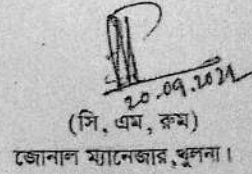 20.09.2021
(সি, এম, রুম)
জোনাল ম্যানেজার, খুলনা।